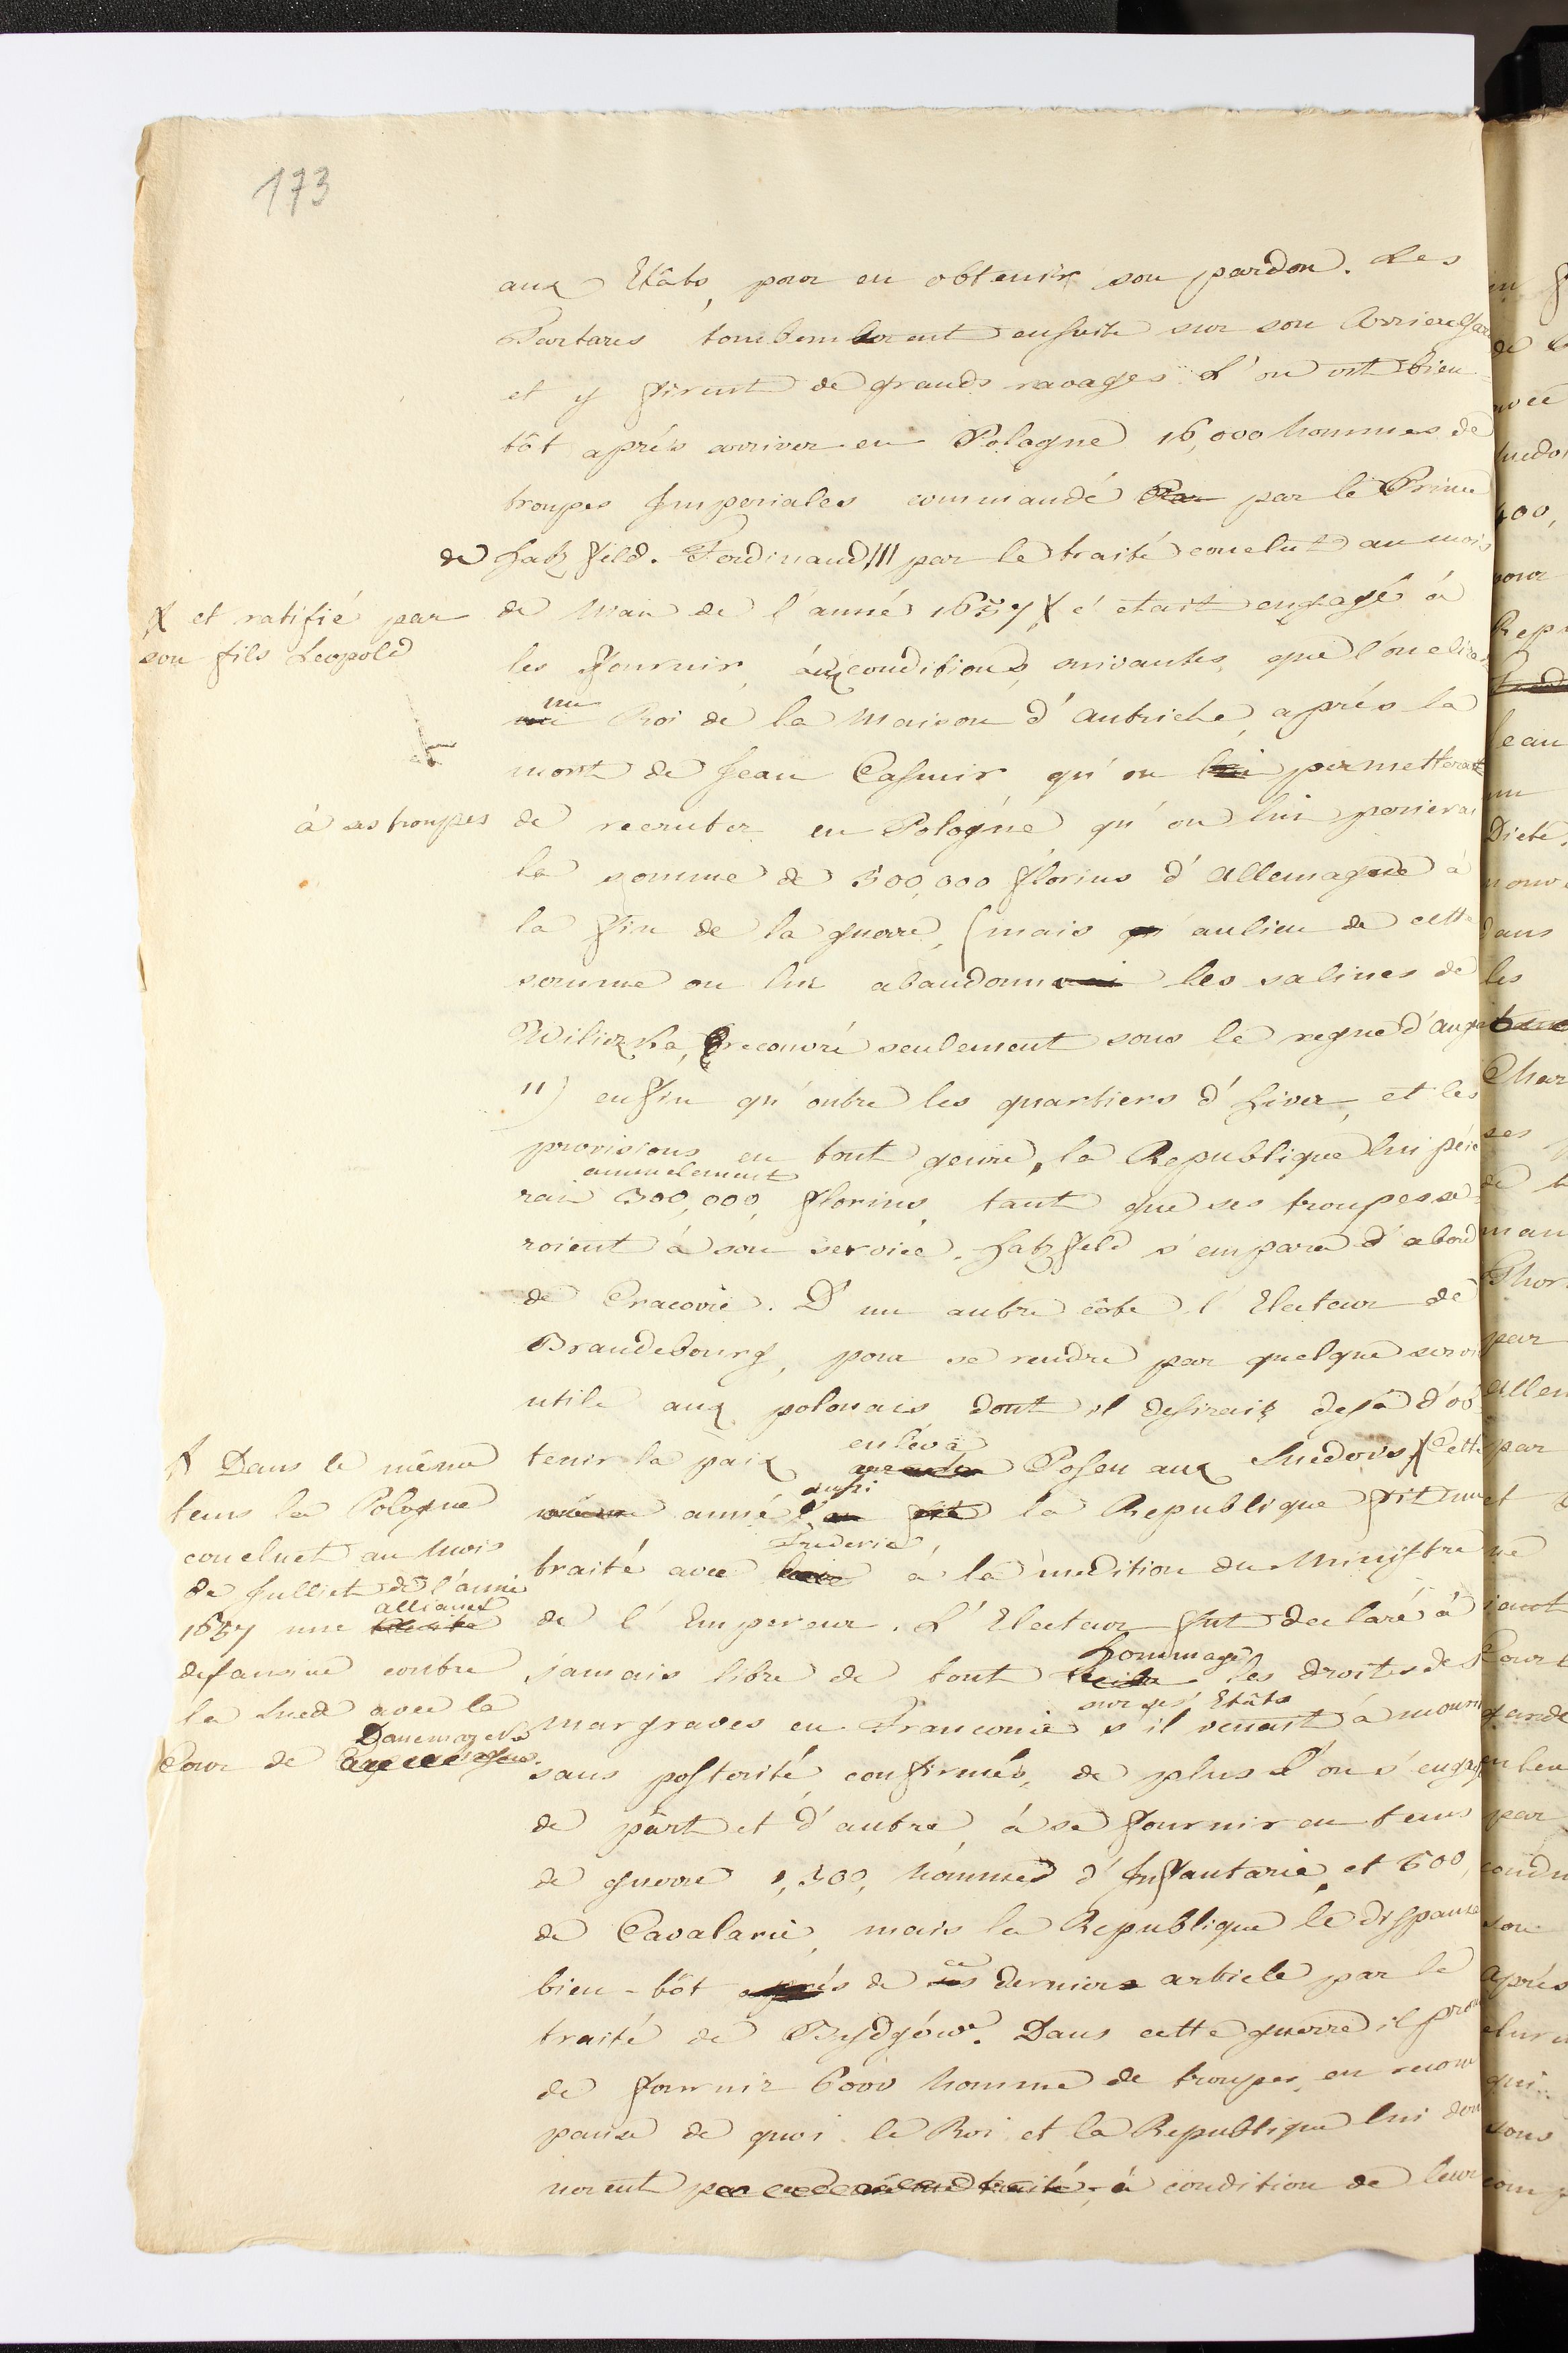 173
aux Etâts, pour en obtenir son pardon. Les
Tartares tombem erent ensuite sur son Arriere Gar
et y firent de grands ravages. L'on vit bien
tôt aprés arriver en Pologne 16,000 hommes de
troupes Imperiales commandé Par par le Prince
de Hatzfeld. Ferdinand III par le traité conclut au mois
de Mai de l'anné 1657 X s'etait engagé à
X et ratifié par
son fils Leopold
les fournir, aux conditions suivantes, que l'on elira
un
Roi de la Maison d'Autriche, aprés la
mort de Jean Casmir, qu'on lui permetterait
à ses troupes
de recruter en Pologne qu'on lui paierai
la somme de 500,000 florins d'Allemagne à
la fin de la guerre, (mais qu' aulieu de cette
somme on lui abandonnerai les salines de
Wiliczka, recouvré seulement sous le regne d'Aug
II) enfin qu'outre les quartiers d'hiver, et les
provisions en tout genre, la Republique lui péie
annuelement
rai 300,000, florins, tant que ses troupes se
roient à son service. Hatzfeld s'empara d'abord
de Cracovie. D'un autre côte l'Electeur de
Brandebourg, pour se rendre par quelque servi
utile aux polonais dont il desirait deja d'ob
enléva
tenir la paix Posen aux Suedois X Cette
aussi
même anné l'on fit la Republique fit un
Frederic,
traité avec lui à la médition du Ministre
de l'Empereur. L'Electeur fut declaré à
hommage
jamais libre de tout les droits des
sur ses Etâts
Margraves en Franconie s'il venait à mouri
sans posterité confirmés, de plus l'on s'engag
de part et d'autre, à se fournir en tems
de guerre 1,500, hommes d'Infantarie, et 500,
de Cavalarie, mais la Republique le dispansa
ce
bien-tôt aprés de ces derniers article par le
traité de Bydgów. Dans cette guerre il prom
de fournir 6000 homme de troupes, en recom
panse de quoi le Roi et la Republique lui don
nerent par ce même traité, à condition de leur
X Dans le même
tems la Pologne
concluet au Mois
de Julliet de l'anné
alliance
1657 une traité
defansive contre
la Sued avec la
Danemarck
Cour de